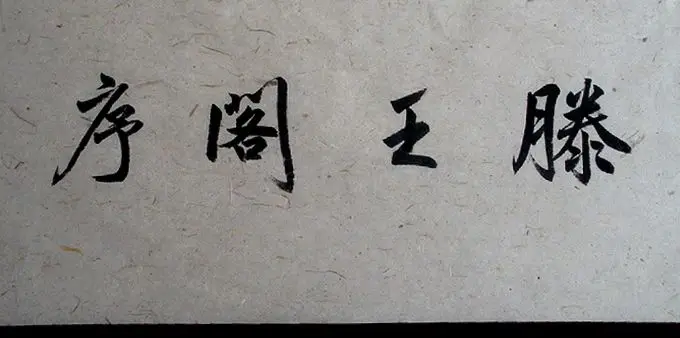 滕王閣序